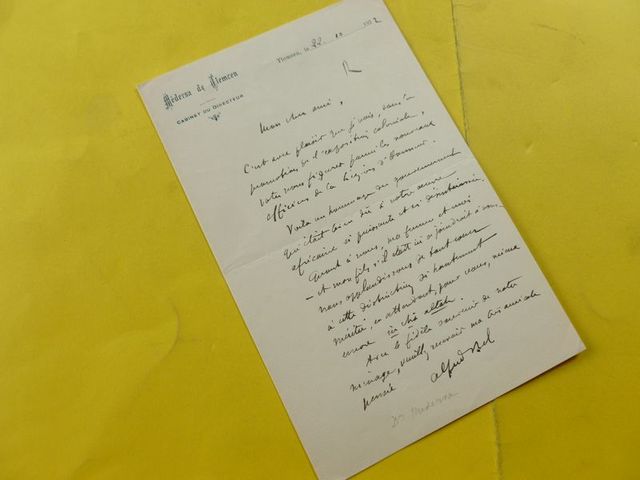 Médersa de Tlemcen
CABINET DU DIRECTEUR
Tlemcen, le 22 1932
R
Mon cher ami,
C'est avec plaisir que je vois, dans la
promotion de l'exposition coloniale,
votre nom figurer parmi les nouveaux
officiers de la Légion d'honneur.
Voilà un hommage du gouvernement
qui était bien dû à votre œuvre
africaine si puissante et si désintéressée.
Quant à nous, ma femme et moi
– et mon fils s'il était ici se joindrait à nous
nous applaudissons de tout cœur
à cette distinction si hautement
méritée, en attendant, pour vous, mieux
encore in châ allah
Avec le fidèle souvenir de notre
ménage, veuillez recevoir ma très amicale
pensée
Alfred Bel
Dr Medersa